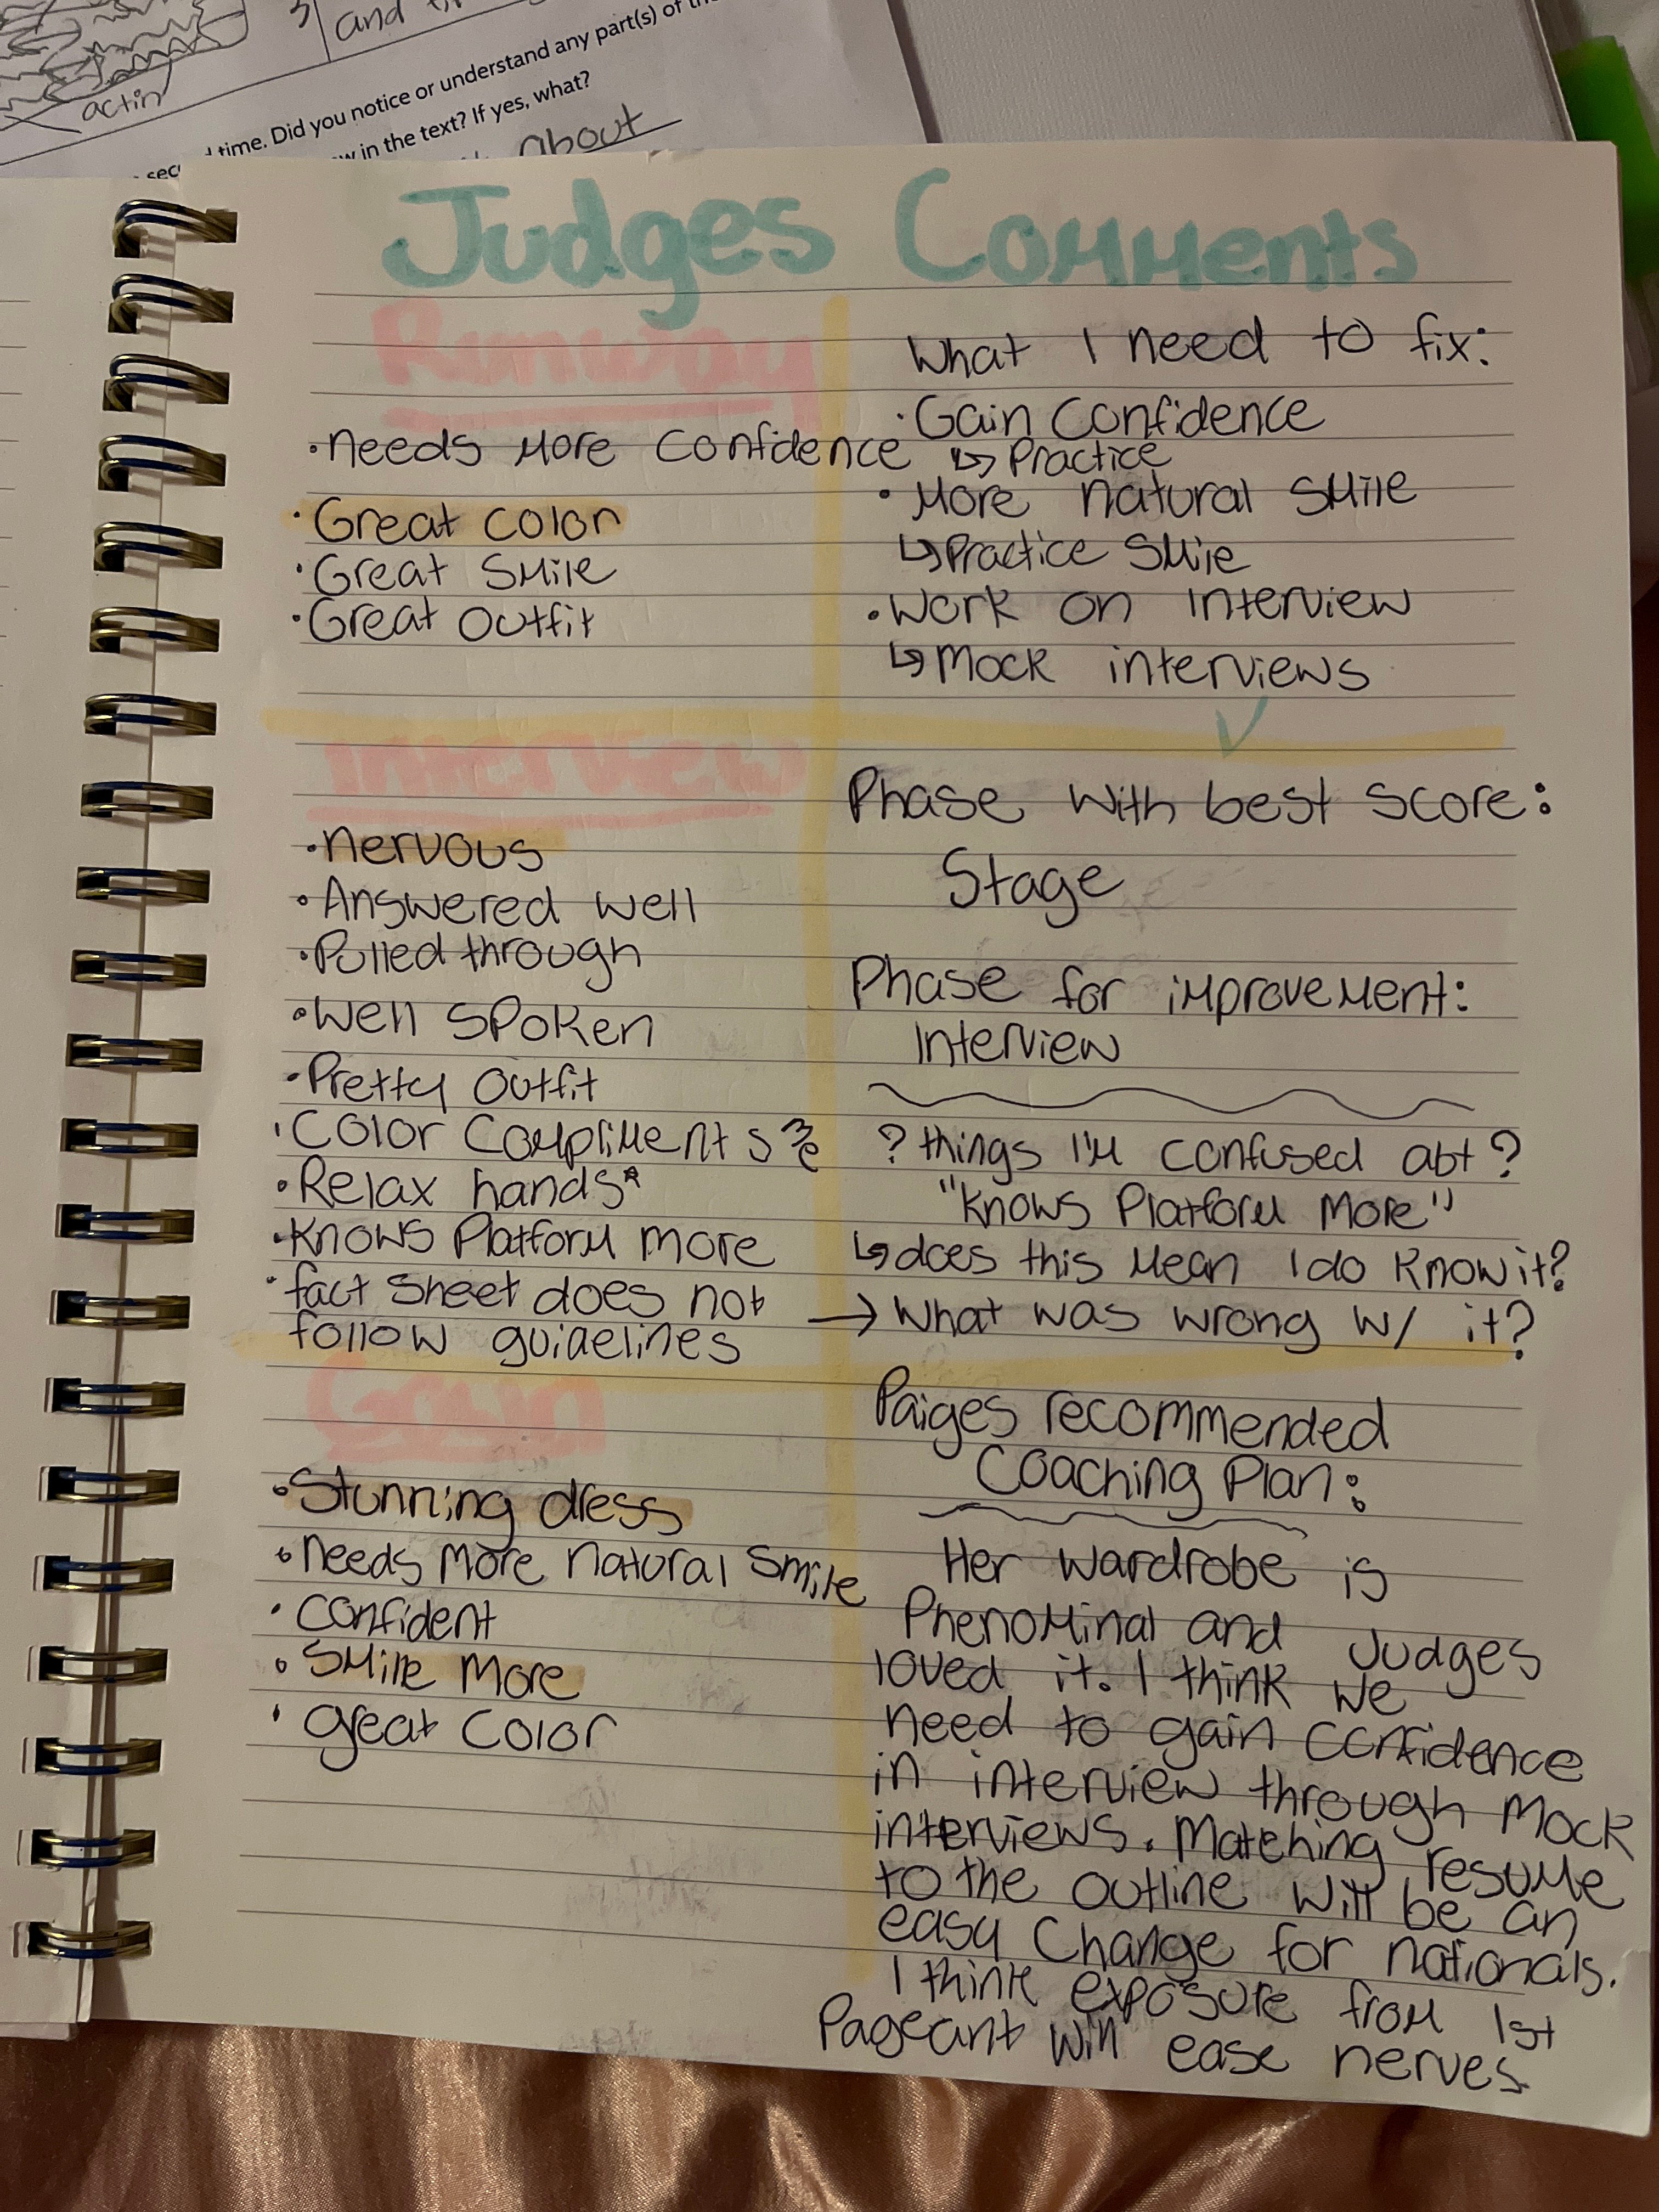 and
actin
time. Did you notice or understand any part(s) of the
in the text? If yes, what?
About
Judges Comments
Runway
• needs more confidence
• Great color
• Great smile
• Great outfit
What I need to fix:
• Gain confidence
↳ Practice
• More natural smile
↳ Practice smile
• Work on interview
↳ Mock interviews
✓
Interview
• nervous
• Answered well
• Pulled through
• Well spoken
• Pretty outfit
• Color compliments me
• Relax hands*
• Knows Platform more
• fact sheet does not
follow guidelines
Phase with best score:
Stage
Phase for improvement:
Interview
? things I'm confused abt ?
"Knows Platform More"
↳ does this mean I do know it?
→ What was wrong w/ it?
Gown
• Stunning dress
• needs more natural smile
• confident
• smile more
• great color
Paiges recommended
Coaching Plan:
Her wardrobe is
Phenominal and Judges
loved it. I think we
need to gain confidence
in interview through mock
interviews. Matching resume
to the outline will be an
easy change for nationals.
I think exposure from 1st
Pageant will ease nerves